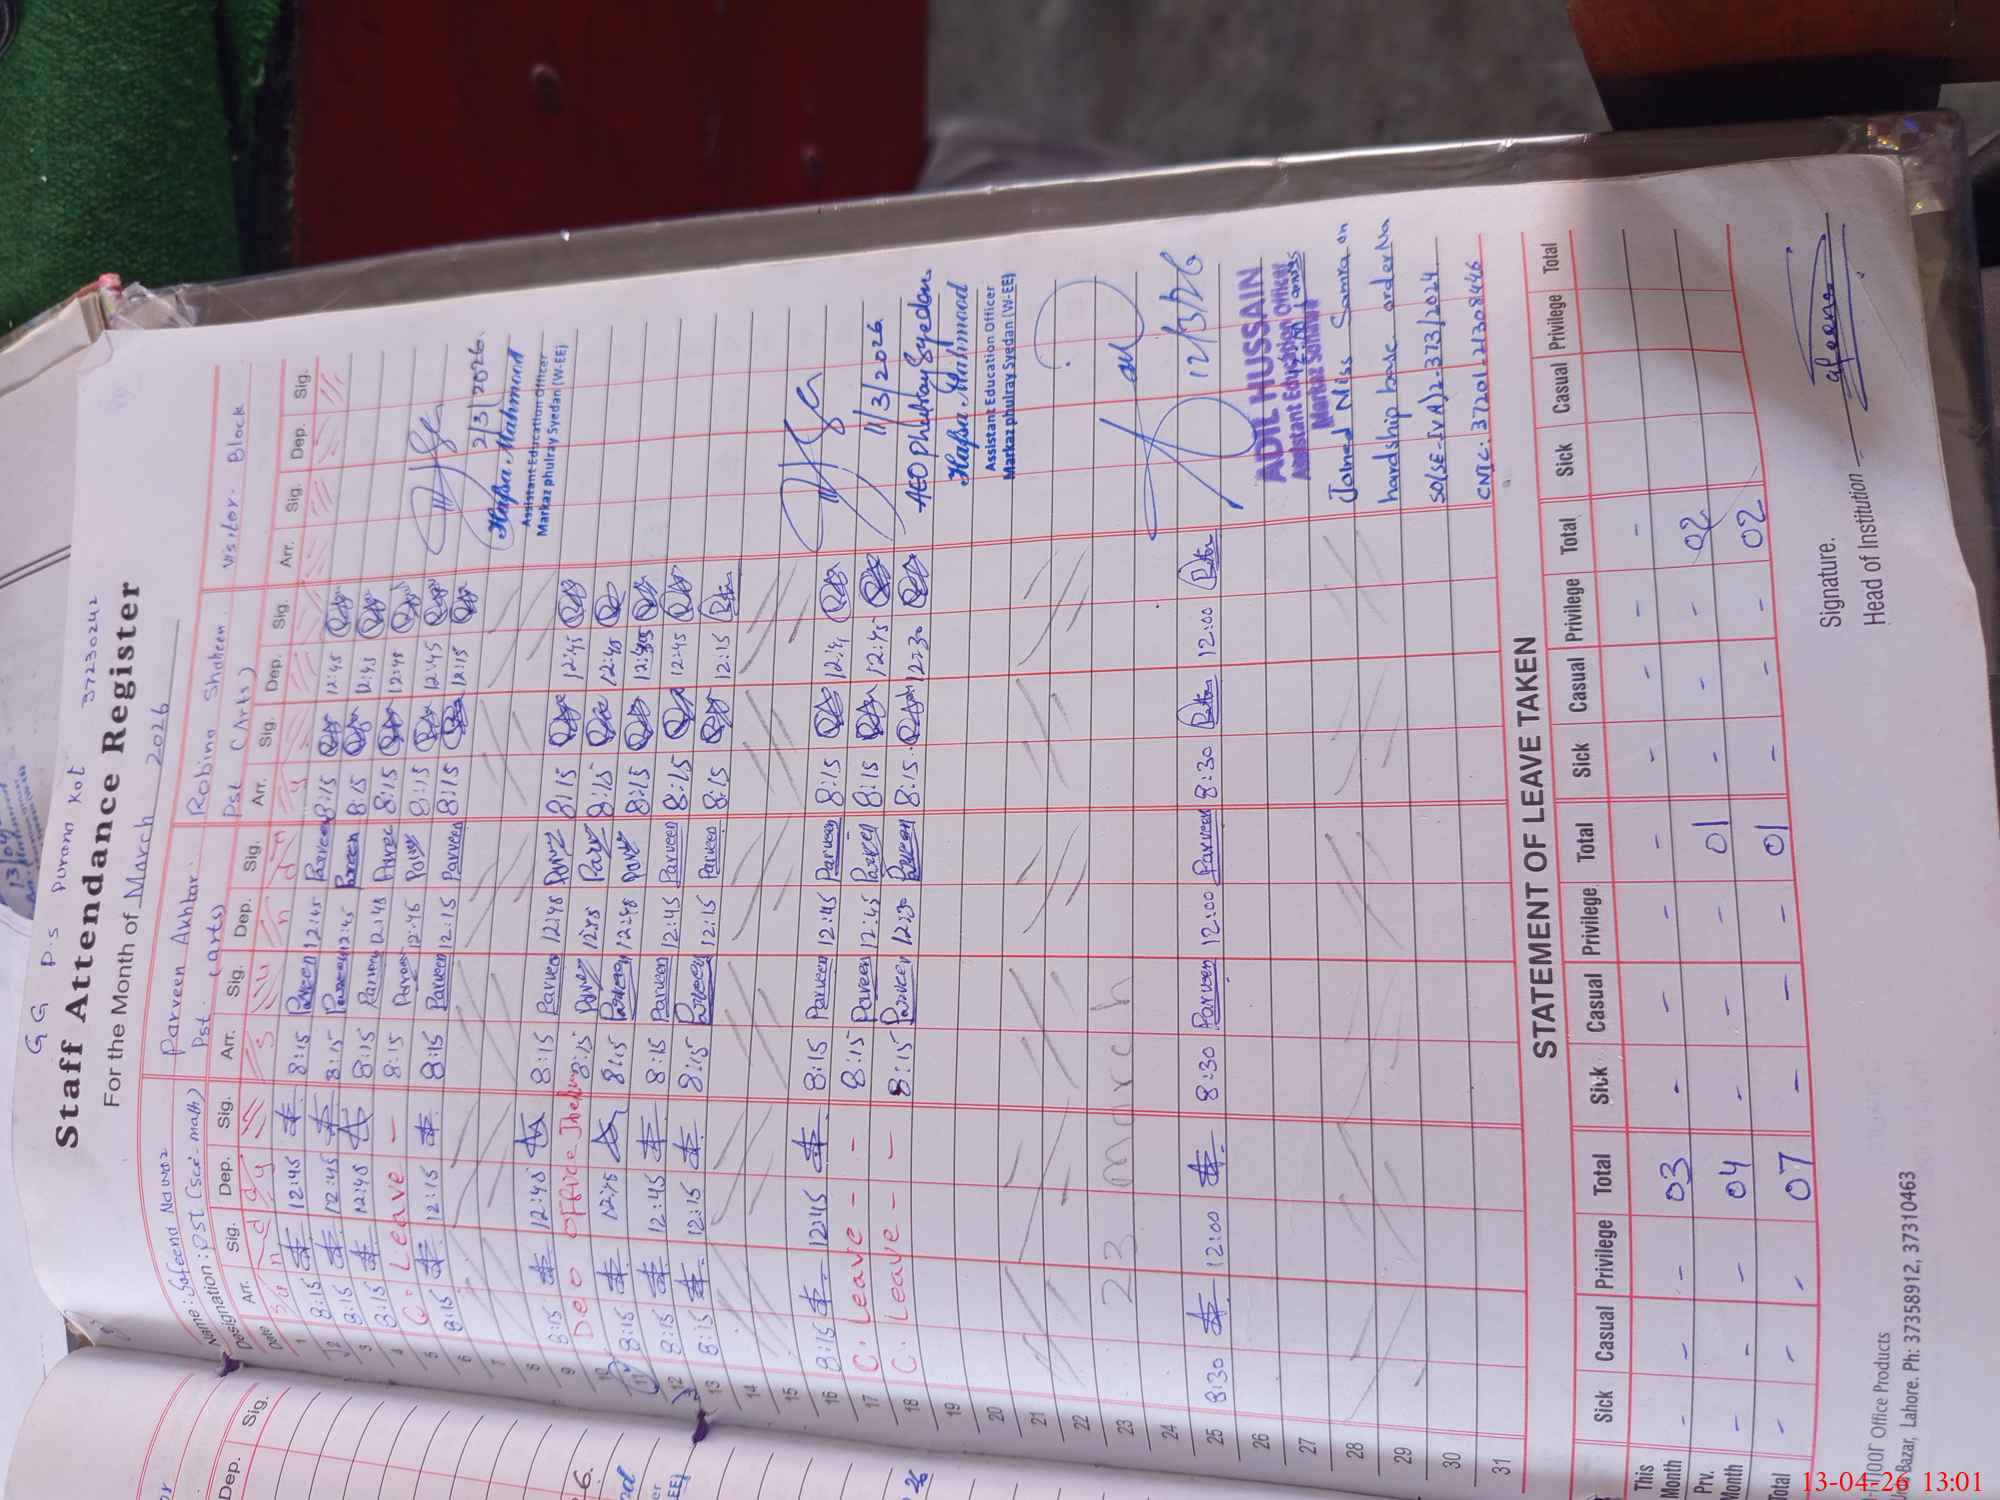 GG P.S Purana Kot 37230242
Staff Attendance Register
For the Month of March 2026
Name: Safeena Nawaz
Parveen Akhtar
Robina Shaheen
Visitor- Block
Designation: PST (Sce-math)
Pst (arts)
Pst (Arts)
Date Arr. Sig. Dep. Sig. Arr. Sig. Dep. Sig. Arr. Sig. Dep. Sig. Arr. Sig. Dep. Sig.
1 Sunday Sunday
2 8:15 12:45 8:15 Parveen 12:45 Parveen 8:15 12:45
3 8:15 12:45 8:15 Parveen 12:45 Parveen 8:15 12:45
4 8:15 12:45 8:15 Parveen 12:45 Parveen 8:15 12:45
5 C. Leave - 8:15 Parveen 12:45 8:15 12:45
6 8:15 12:15 8:15 Parveen 12:15 Parveen 8:15 12:15
7
8
9 8:15 12:45 8:15 Parveen 12:45 8:15 12:45
10 Deo office Jhelum 8:15 12:45 8:15 12:45
11 8:15 12:45 8:15 Parveen 12:45 8:15 12:45
12 8:15 12:45 8:15 Parveen 12:45 Parveen 8:15 12:45
13 8:15 12:15 8:15 Parveen 12:15 Parveen 8:15 12:15
14
15
16 8:15 12:45 8:15 Parveen 12:45 Parveen 8:15 12:4
17 C: Leave - - 8:15 Parveen 12:45 Parveen 8:15 12:45
18 C: Leave - - 8:15 Parveen 12:30 Parveen 8:15 12:30
19
20
21
22
23 23 march
24
25 8:30 12:00 8:30 Parveen 12:00 Parveen 8:30 12:00
26
27
28
29
30
31
2/3/2026.
Hafsa Mahmood
Assistant Education Officer
Markaz phulray Syedan (W-EE)
11/3/2026
AEO Phulray Syedan
Hafsa Mahmood
Assistant Education Officer
Markaz phulray Syedan (W-EE)
?
12/3/26
ADIL HUSSAIN
Assistant Education Officer
Markaz Sohawa
Joined Miss Samra on
hardship base order No
SO(SE-IV A)2-373/2024
CNIC: 37201-2130844-6
STATEMENT OF LEAVE TAKEN
Sick Casual Privilege Total Sick Casual Privilege Total Sick Casual Privilege Total Sick Casual Privilege Total
This Month - - - 03 - - - - - - - -
Prv. Month - - - 04 - - - 01 - - - 02
Total - - - 07 - - - 01 - - - 02
Signature.
Head of Institution
Office Products
Bazar, Lahore. Ph: 37358912, 37310463
Dep. Sig.
13-04-26 13:01